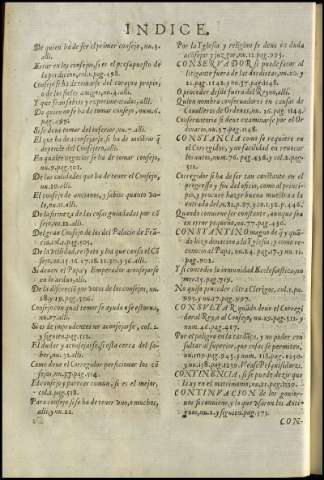 INDICE.
De quien ha de ser el primer consejo, nu.3.
alli.
Errar en los consejos, si es el presupuesto de
la perdicion, col.2. pag. 498.
Consejo si ha de tomarse del coraçon propio,
o de los fieles amigos, nu.4. alli.
Y que sean sabios y experimentados, alli.
De quien no se ha de tomar consejo, num.6.
pag. 499.
Si se deue tomar del inferior, nu.7. alli.
El que ha de aconsejarse, si ha de mostrar q̃
depende del Consejero, alli.
En qualès negocios se ha de tomar consejo,
nu.9. pag. 501.
De las calidades que ha de tener el Consejo,
nu.10. alli.
El consejo de ancianos, y sabios quanto va-
le, nu.11. alli.
De la fuerça de las cosas guiadas por cõ
sejo, nu.12. alli.
Del gran Consejo de los del Palacio de Frã-
cia, col.2. pag. 503.
De la vtilidad, respeto y los que consta el Cõ-
sejo, nu.15. 16. 17. 18. 21. 30. y 36. alli.
Si deuen el Papa y Emperador aconsejarse
en lo arduo, alli.
De la discordia por votos de los consejos, nu.
28. y 29. pag. 506.
Consejo con qual temor se ayuda o se estorua,
nu.27. alli.
Si es de imprudentes no aconsejarse, col. 2.
y siguien. pag. 512.
El dudar y aconsejarse, si esta cerca del sa-
ber, nu.32. alli.
Como deue el Corregidor perficionar los cõ
sejos, nu.37. pag. 514.
El consejo y parecer comun, si es el mejor,
col.2. pag. 518.
Para consejo si se ha de tener vno, o muchos,
alli, y nu.22.
Por la Yglesia y religion se deue en duda
aconsejar y juzgar, nu.12. pag. 993.
CONSERVADOR si puede sacar al
litigante fuera de las dos dietas, nu.10. y
12. pag. 1148. y nu.37. pag. 1148.
O procede si esta fuera del Reyno, alli.
Quien nombra conseruadores en causas de
Caualleros de Ordenes, nu.36. pag. 1144.
Conseruatoria si deue examinarse por el Or
dinario, nu.37. pag. 1148.
CONSTANCIA como se requiere en
el Corregidor, y no facilidad en reuocar
los autos, num.76. pag. 458. y col.2. pag.
511.
Corregidor si ha de ser tan constante en el
progresso y fin del oficio, como al princi-
pio, y procurar hazer buena muestra a la
entrada del, nu.84. 87. y col.132. pag. 446.
Quando conuiene ser constante, aunque sea
con peligro, nu.77. pag. 436.
CONSTANTINO magno de q̃ y quã-
do hizo donacion a la Yglesia, y como re-
uerencio al Papa, nu.14. pag. 17. y nu.11.
pag. 902.
Y si concedio la inmunidad Eclesiastica, nu-
mero 25. pag. 719.
No quiso proceder contra Clerigos, col.2. pa.
995. y nu.17. pag. 997.
CONSVLTAR quãdo deue el Corregi-
dor al Rey o al Consejo, nu.125. pag. 512. y
num.46. pag. 417.
Por el peligro en la tardãça, y no poder con
sultar al superior, que casos se permiten,
nu.109. pag. 943. y num. 118. pag. 1250.
y nu.128. pag. 1250. Verse Pelignisdares.
CONTINENCIA, si se puede dezir que
la ay en el matrimonio, nu.21. pag. 1219.
CONTINVACION de los gouier-
nos si conuiene, y lo que vsaron los Anti-
guos, nu.2. y siguien. pag. 171.
CON-